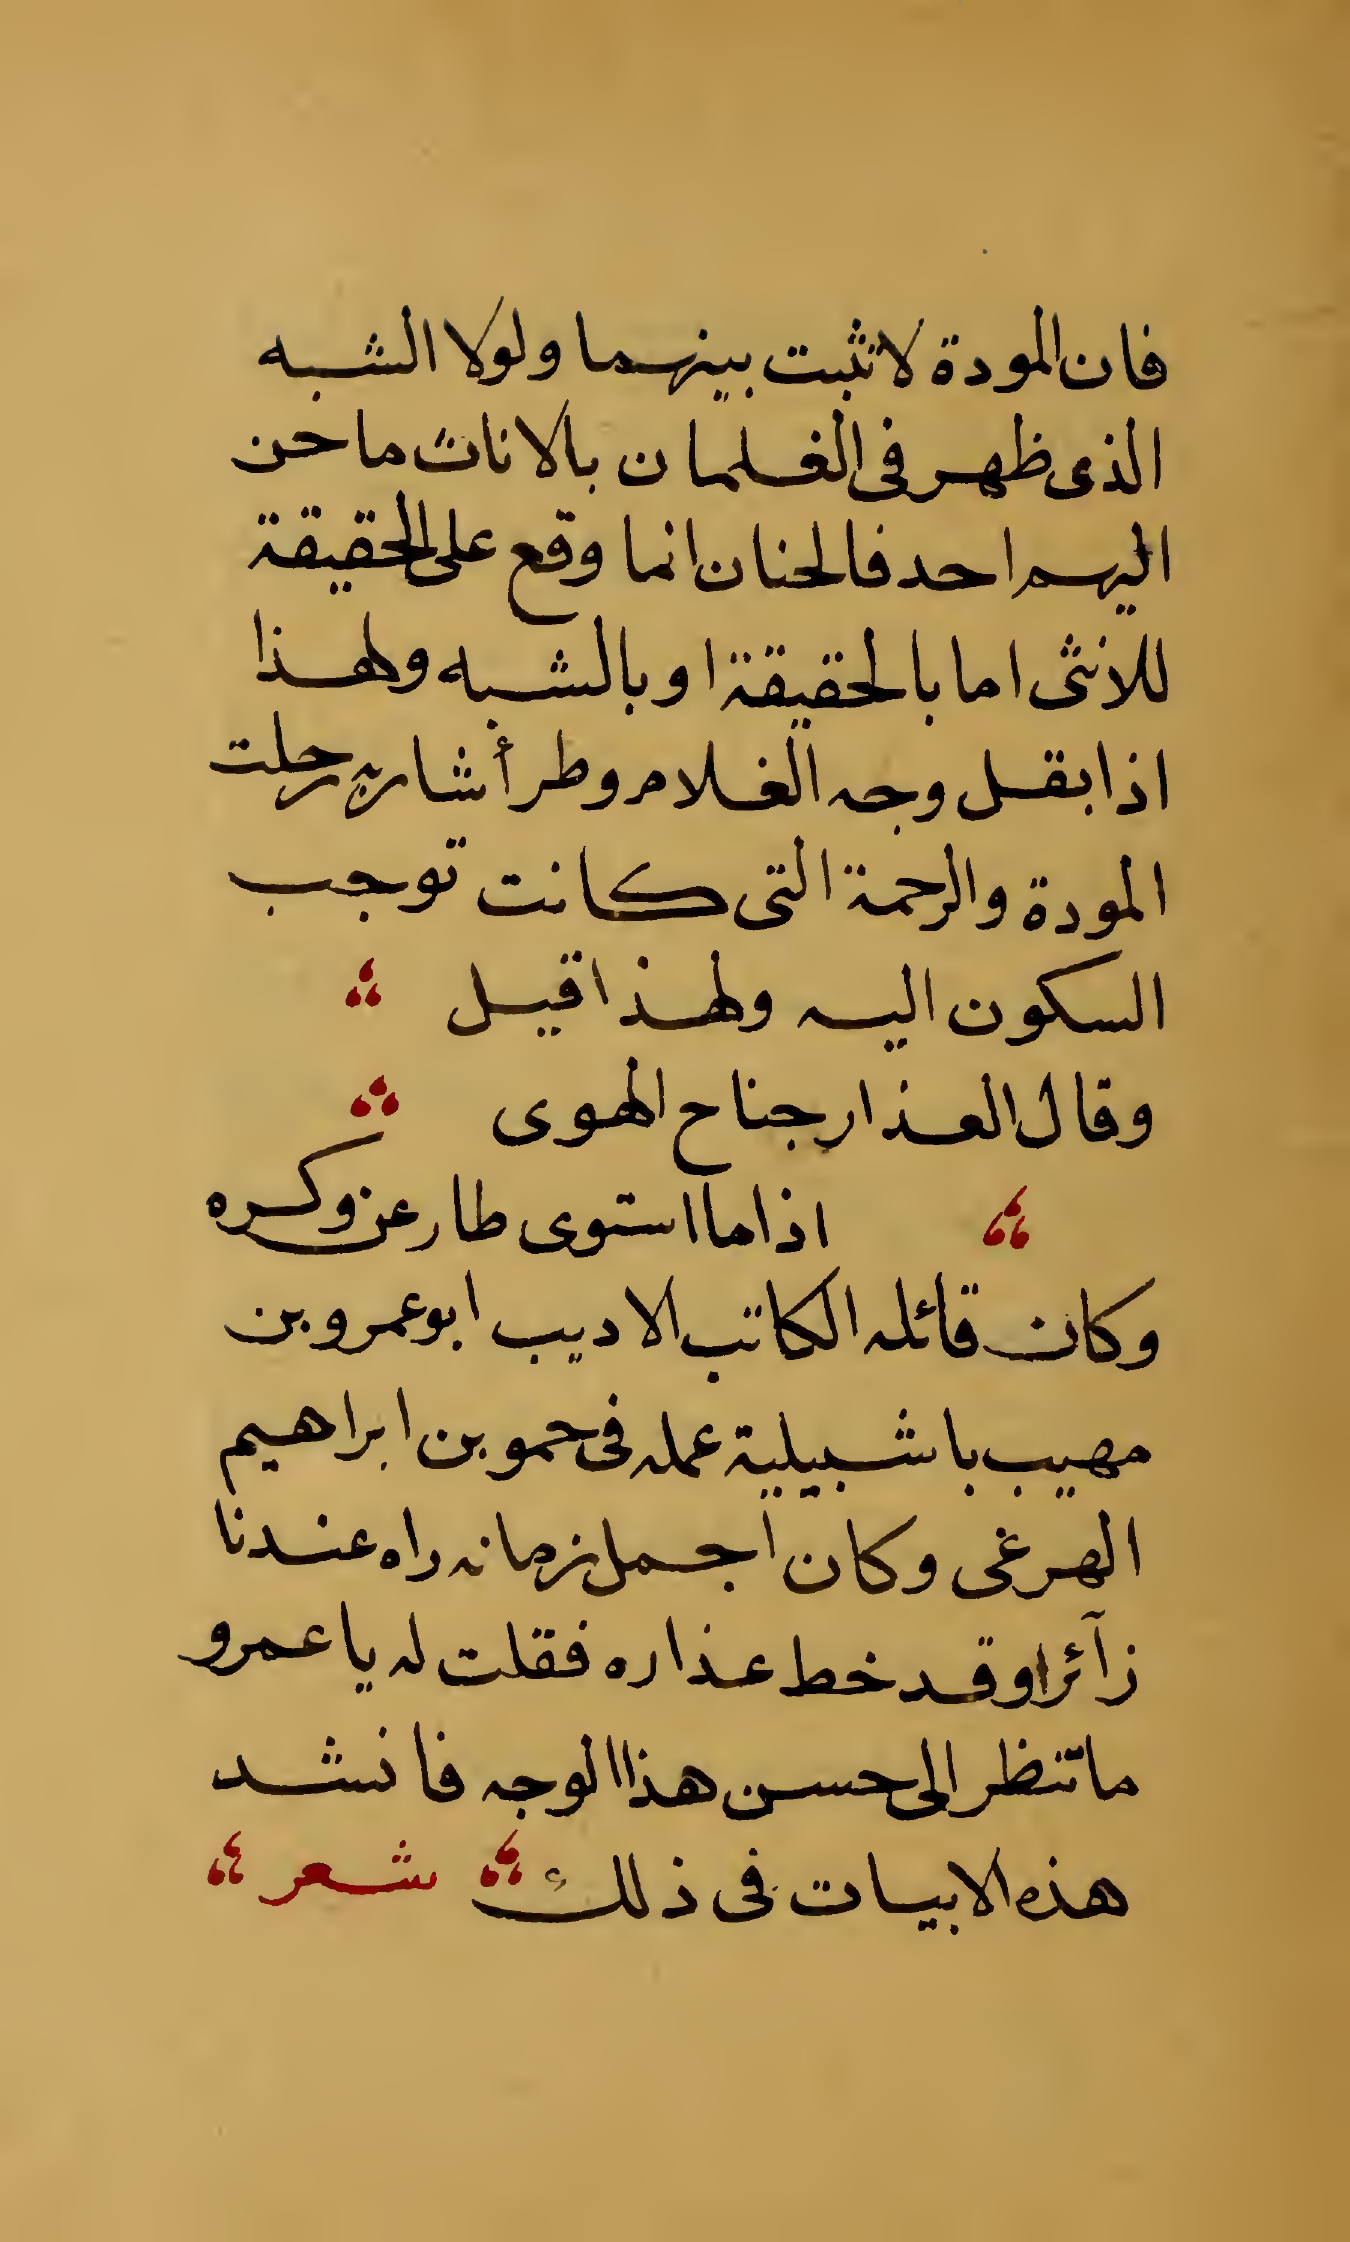 فان المودة لا تثبت بينهما ولولا الشبه
الذى ظهر فى الغلمان بالاناث ما حن
اليهم احد فالحنان انما وقع على الحقيقة
للانثى اما بالحقيقة او بالشبه ولهذا
اذا بقل وجه الغلام وطرأ شاربه رحلت
المودة والرحمة التى كانت توجب
السكون اليه ولهذا قيل
وقال العذار جناح الهوى
اذا ما استوى طار عن وكره
وكان قائله الكاتب الاديب ابو عمرو بن
مهيب باشبيلية عمله فى حمو بن ابراهيم
الهرغى وكان اجمل زمانه راه عندنا
زآئرا وقد خط عذاره فقلت له يا عمرو
ما تنظر الى حسن هذا الوجه فانشد
هذه الابيات فى ذلك شعر